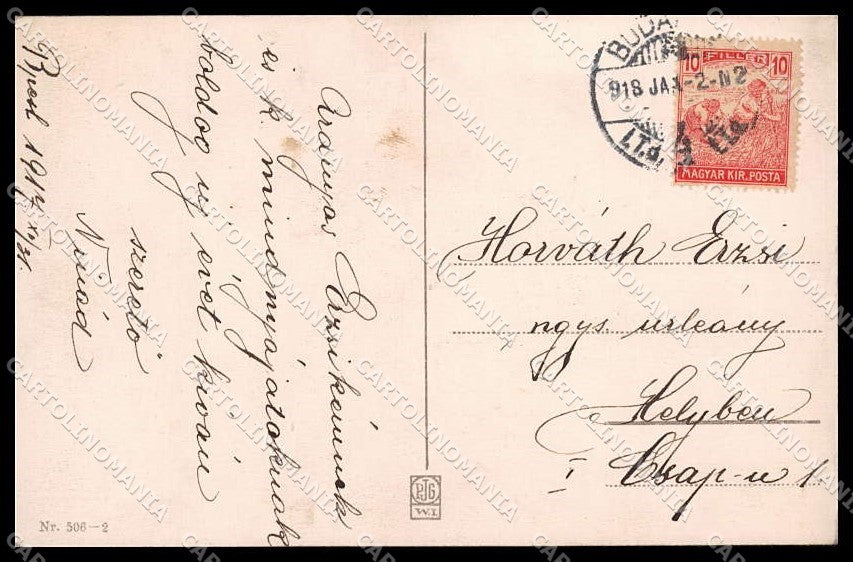 Bpest 1917 XII/31.
Aranyos Erzsikémnek
és k. mindnyájatoknak
boldog uj évet kiván
szerető
Nr. 506–2
PJG
W.I.
BUDA
918 JAN-2-N2
10 FILLER 10
MAGYAR KIR. POSTA
Horváth Erzsi
ngys. urleány
Helyben
I Csap-u 1.
CARTOLINOMANIA